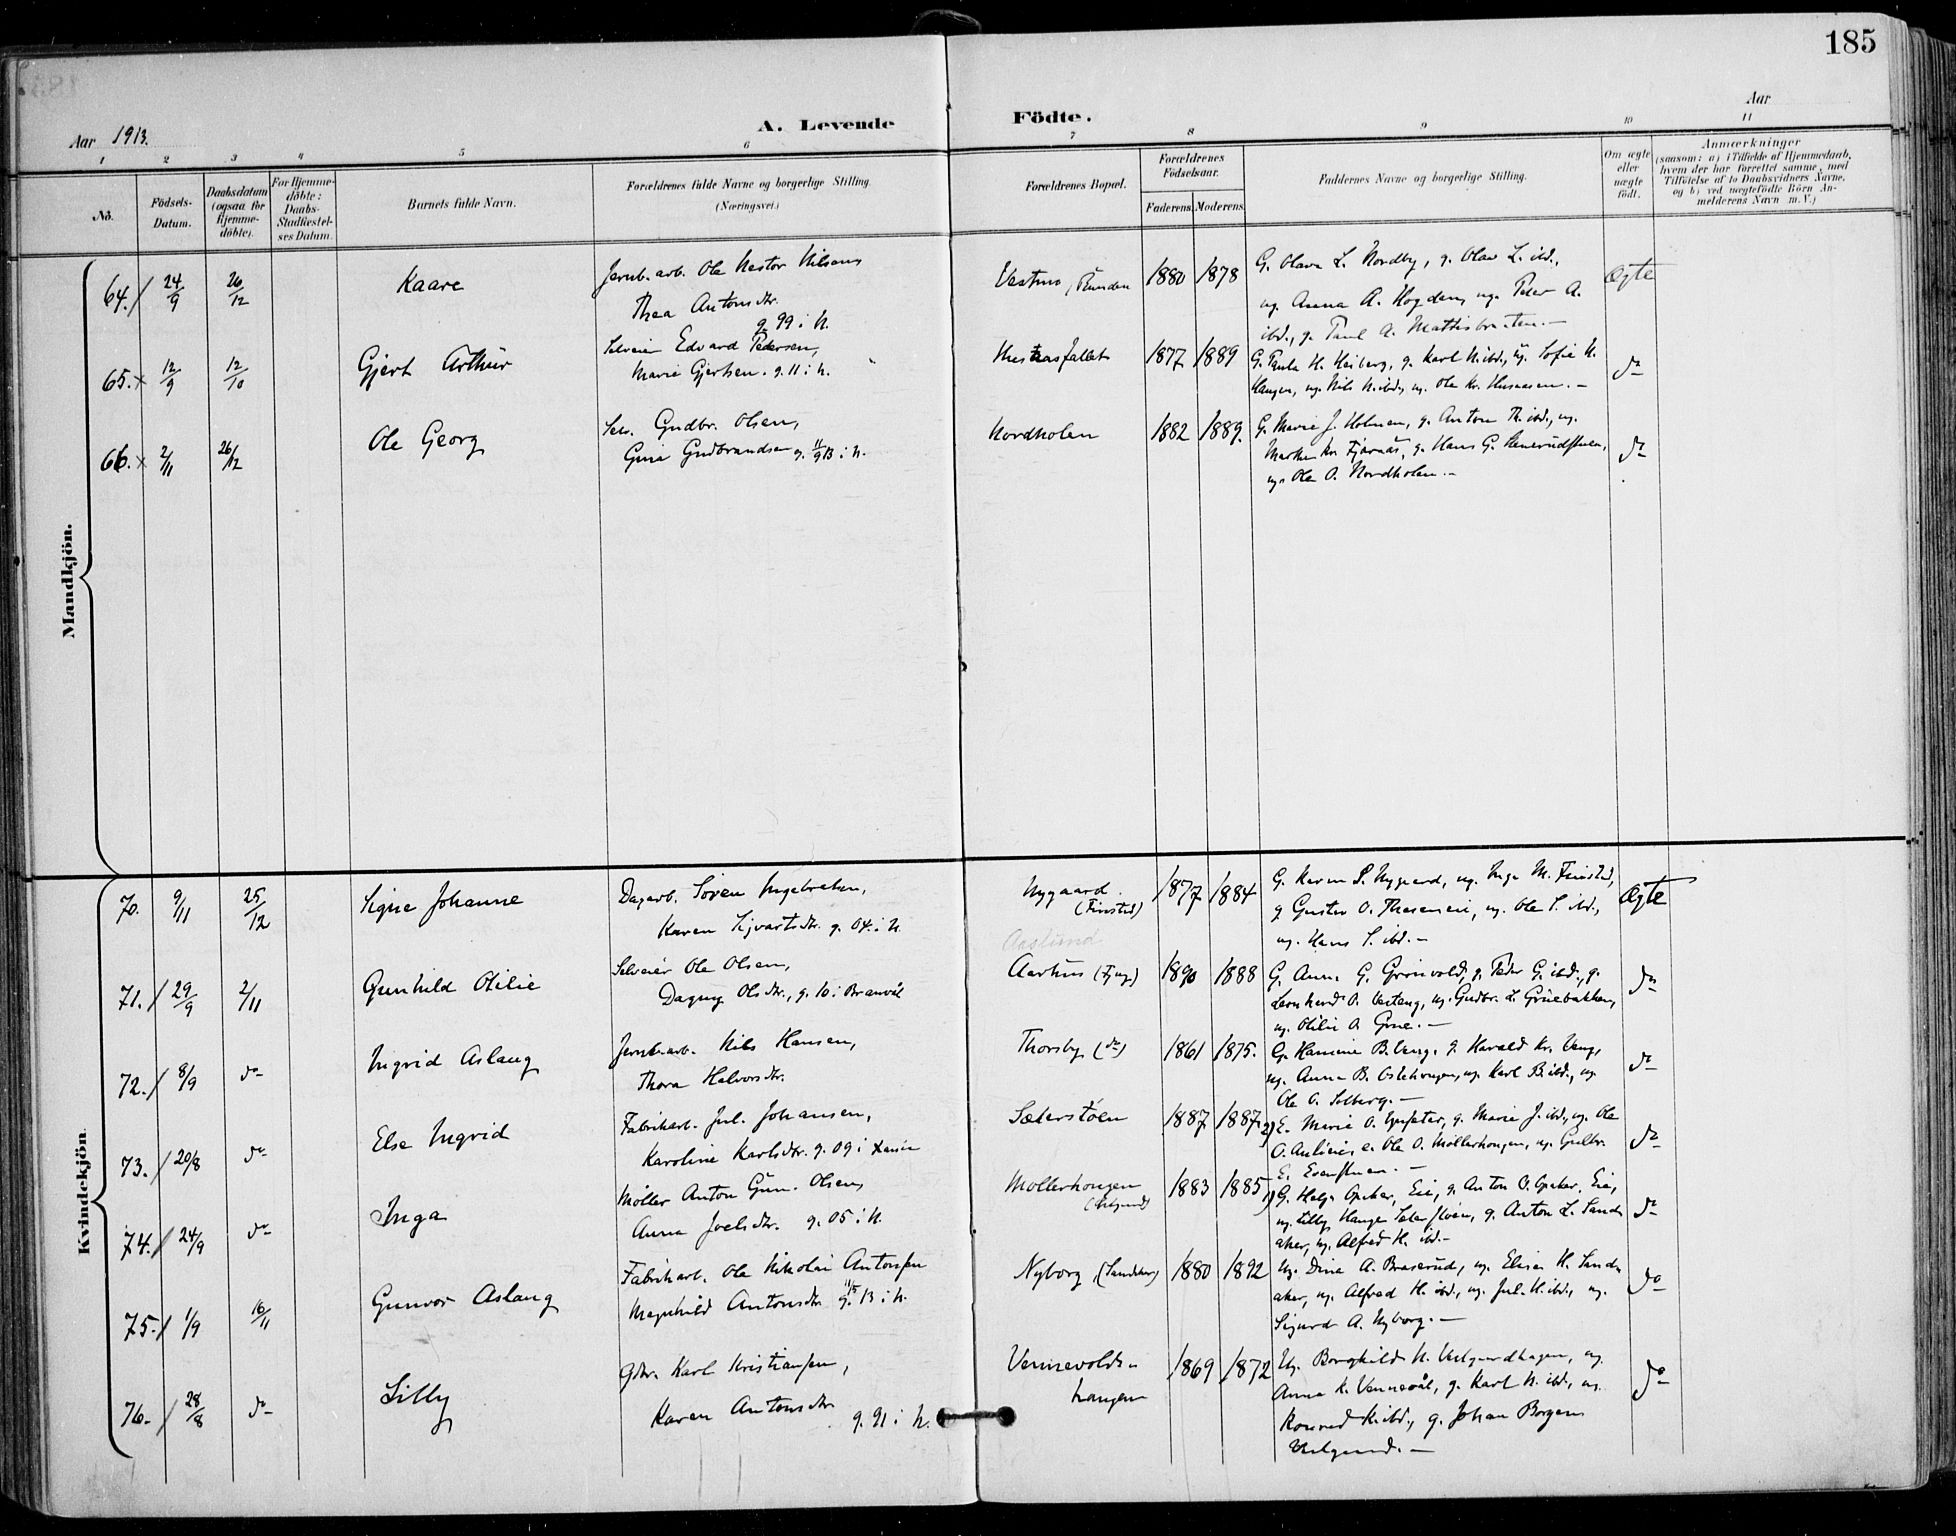 185
Aar 1913.
A. Levende Födte.
Aar
1 2 3 4 5 6 7 8 9 10 11
Nå.
Födsels-Datum.
Daabsdatum (ogsaa for Hjemme-döbte).
For Hjemme-döbte: Daabs-Stadfæstel-ses Datum.
Barnets fulde Navn.
Forældrenes fulde Navne og borgerlige Stilling.
(Næringsvei.)
Forældrenes Bopæl.
Forældrenes Födselsaar.
Faderens. Moderens.
Faddernes Navne og borgerlige Stilling.
Om ægte eller uægte födt.
Anmærkninger
(saasom: a) i Tilfælde af Hjemmedaab,
hvem der har forrettet samme, med
Tilföielse af to Daabsvidners Navne,
og b) ved uægtefödte Börn An-
melderens Navn m.V.)
Mandkjön.
64. / 24/9 26/12 Kaare
Jernb.arb. Ole Nestor Nilsen,
Thea Antonsdtr.
g. 99 i N.
Vestmo 1880 1878
G. Olava L. Nordby, g. Olav L. ibd.,
ug. Anna A. Hogden, ug. Peter A.
ibd., g. Paul A. Mattisbraaten.—
Ægte
65. x 12/9 12/10 Gjert Arthur
Selveier Edvard Pedersen,
Marie Gjertsen. g. 11 i N.
1877 1889
G. Paula H. Heiberg, g. Karl N. ibd., ug. Sofie N.
Haugen, ug. Nils N. ibd., ug. Ole Kr. Husaasen.—
do
66. x 2/11 26/12 Ole Georg
Selv. Gudbr. Olsen,
Gina Gudbrandsen g. 11/9 13 i N.
Nordholen 1882 1889.
G. Marie J. Holmen, g. Anton Th. ibd., ug.
Marthe Kr. Fjørnås, g. Hans G.
ug. Ole O. Nordholen.—
do
Kvindekjön.
70. 9/11 25/12 Signe Johanne
Dagarb. Sören Ingebretsen,
Karen Sigvartsdtr. g. 04 i N.
Nygaard. (Finstad) 1877 1884
G. Karen S. Nygaard, ug. Inga M. Finstad,
g. Gustav O. ug. Ole S. ibd.,
ug. Hans S. ibd.—
Ægte
Aaslund
71. / 29/9 2/11 Gunhild Otilie
Selveier Ole Olsen,
Dagny Olsdtr., g. 10 i Brandvål
Aarhus 1890 1888
G. Anna G. Grönvold, g. Peder G. ibd., g.
Leonhard O. Vesteng, ug. Gudbr. L. Gruebakken,
ug. Otilie O. Grue.—
do
72. / 8/9 do Ingrid Aslaug
Jernb.arb. Nils Hansen,
Thora Halvorsdtr.
Thorsby (do) 1861 1875.
G. Hanine B. Vang, g. Harald Kr. Vang,
ug. Anna B. ug. Karl B. ibd., ug.
Ole O. Solberg.—
do
73. / 20/8 do Else Ingrid
Fabrikarb. Jul. Johansen,
Karoline Karlsdtr. g. 09 i
Sæterstöen 1887 1887.
2) E. Marie O. g. Marie J. ibd., ug. Ole
O. e. Ole O. Möllerhaugen, ug. Gulbr.
E.
do
74. / 24/9 do Inga
Møller Anton Gun. Olsen,
Anna Joelsdtr. g. 05 i N.
Møllerhaugen 1883 1885
1) G. Helga Opaker, Eie, g. Anton O. Opaker, Eie,
ug. Lilly Hauge g. Anton L. Sand-
aker, ug. Alfred H. ibd.—
do
75. / 1/9 16/11 Gunvor Aslaug
Fabrikarb. Ole Nikolai Antonsen
Magnhild Antonsdtr. g. 11/5 13 i N.
Nyborg, (Sandaker) 1880 1892
Ug. Dina A. Braserud, ug. Elise H. Sand-
aker, ug. Alfred H. ibd., ug. Jul. H. ibd., ug.
Sigurd A. Nyborg.—
do
76. / 28/8 do Lilly
Gbr. Karl Kristiansen,
Karen Antonsdtr.
g. 91 i N.
Vennevolds-
haugen
1869 1872
Ug. Borghild N. ug.
Anna K. Vennevål, g. Karl N. ibd., ug.
Konrad K. ibd., g. Johan Borgen
do